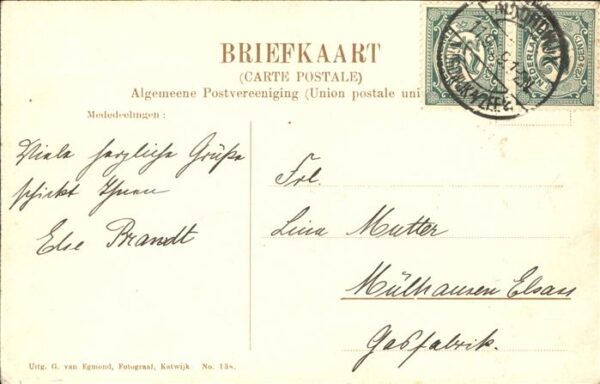 BRIEFKAART
(CARTE POSTALE)
Algemeene Postvereeniging (Union postale uni
Mededeelingen:
Viele herzliche Grüße
schickt Ihnen
Else Brandt
Frl.
Lina Mutter
Mülhausen Elsass
Gasfabrik.
Uitg. G. van Egmond, Fotograaf, Katwijk. No. 158.